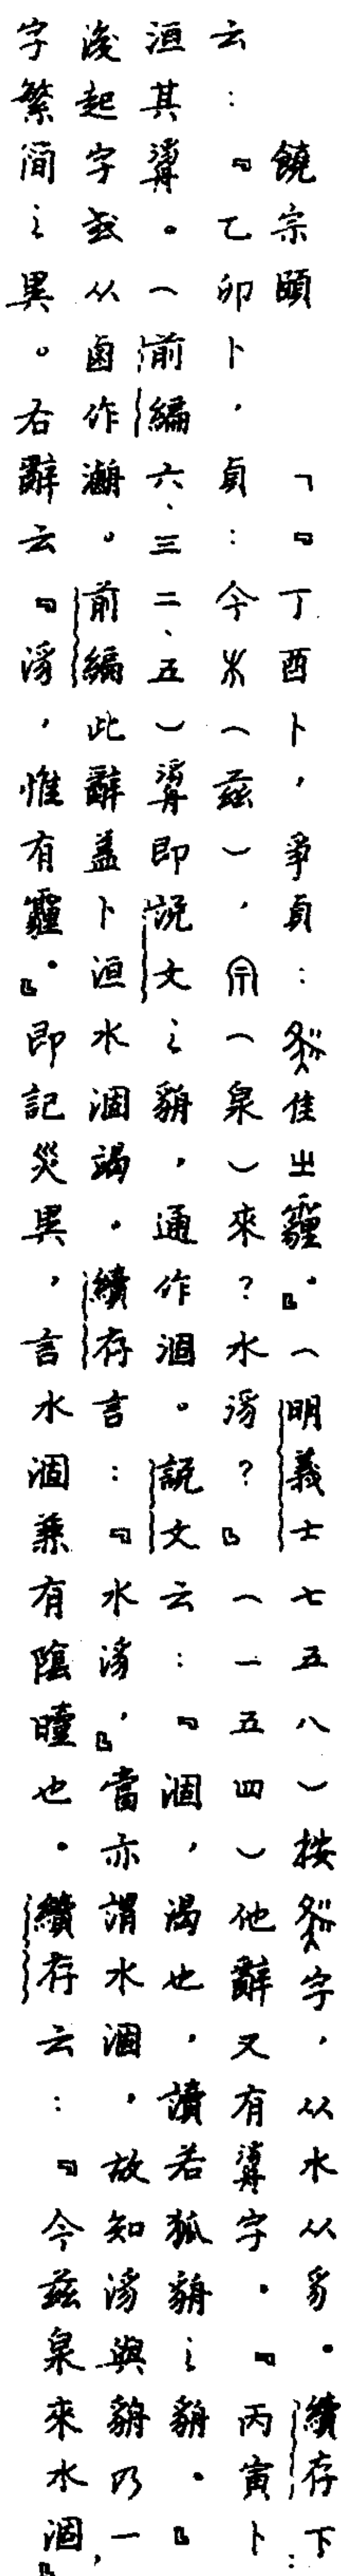 饒宗頤 「『丁酉卜，爭貞：隹㞢霾。』（明義士七五八）按字，从水从豸。續存下：
云：『乙卯卜，貞：今（茲），（泉）來？水㴍？』（一五四）他辭又有字。『丙寅卜
洹其。（前編六、三二、五）即說文之貈，通作涸。說文云：『涸，渴也，讀若狐貈之貈。』
後起字或从鹵作㶜。前編此辭蓋卜洹水涸竭。續存言：『水㴍』，當亦謂水涸，故知㴍與貈乃一
字繁簡之異。右辭云『㴍，惟有霾。』即記災異，言水涸兼有陰曀也。續存云：『今茲泉來水涸』，